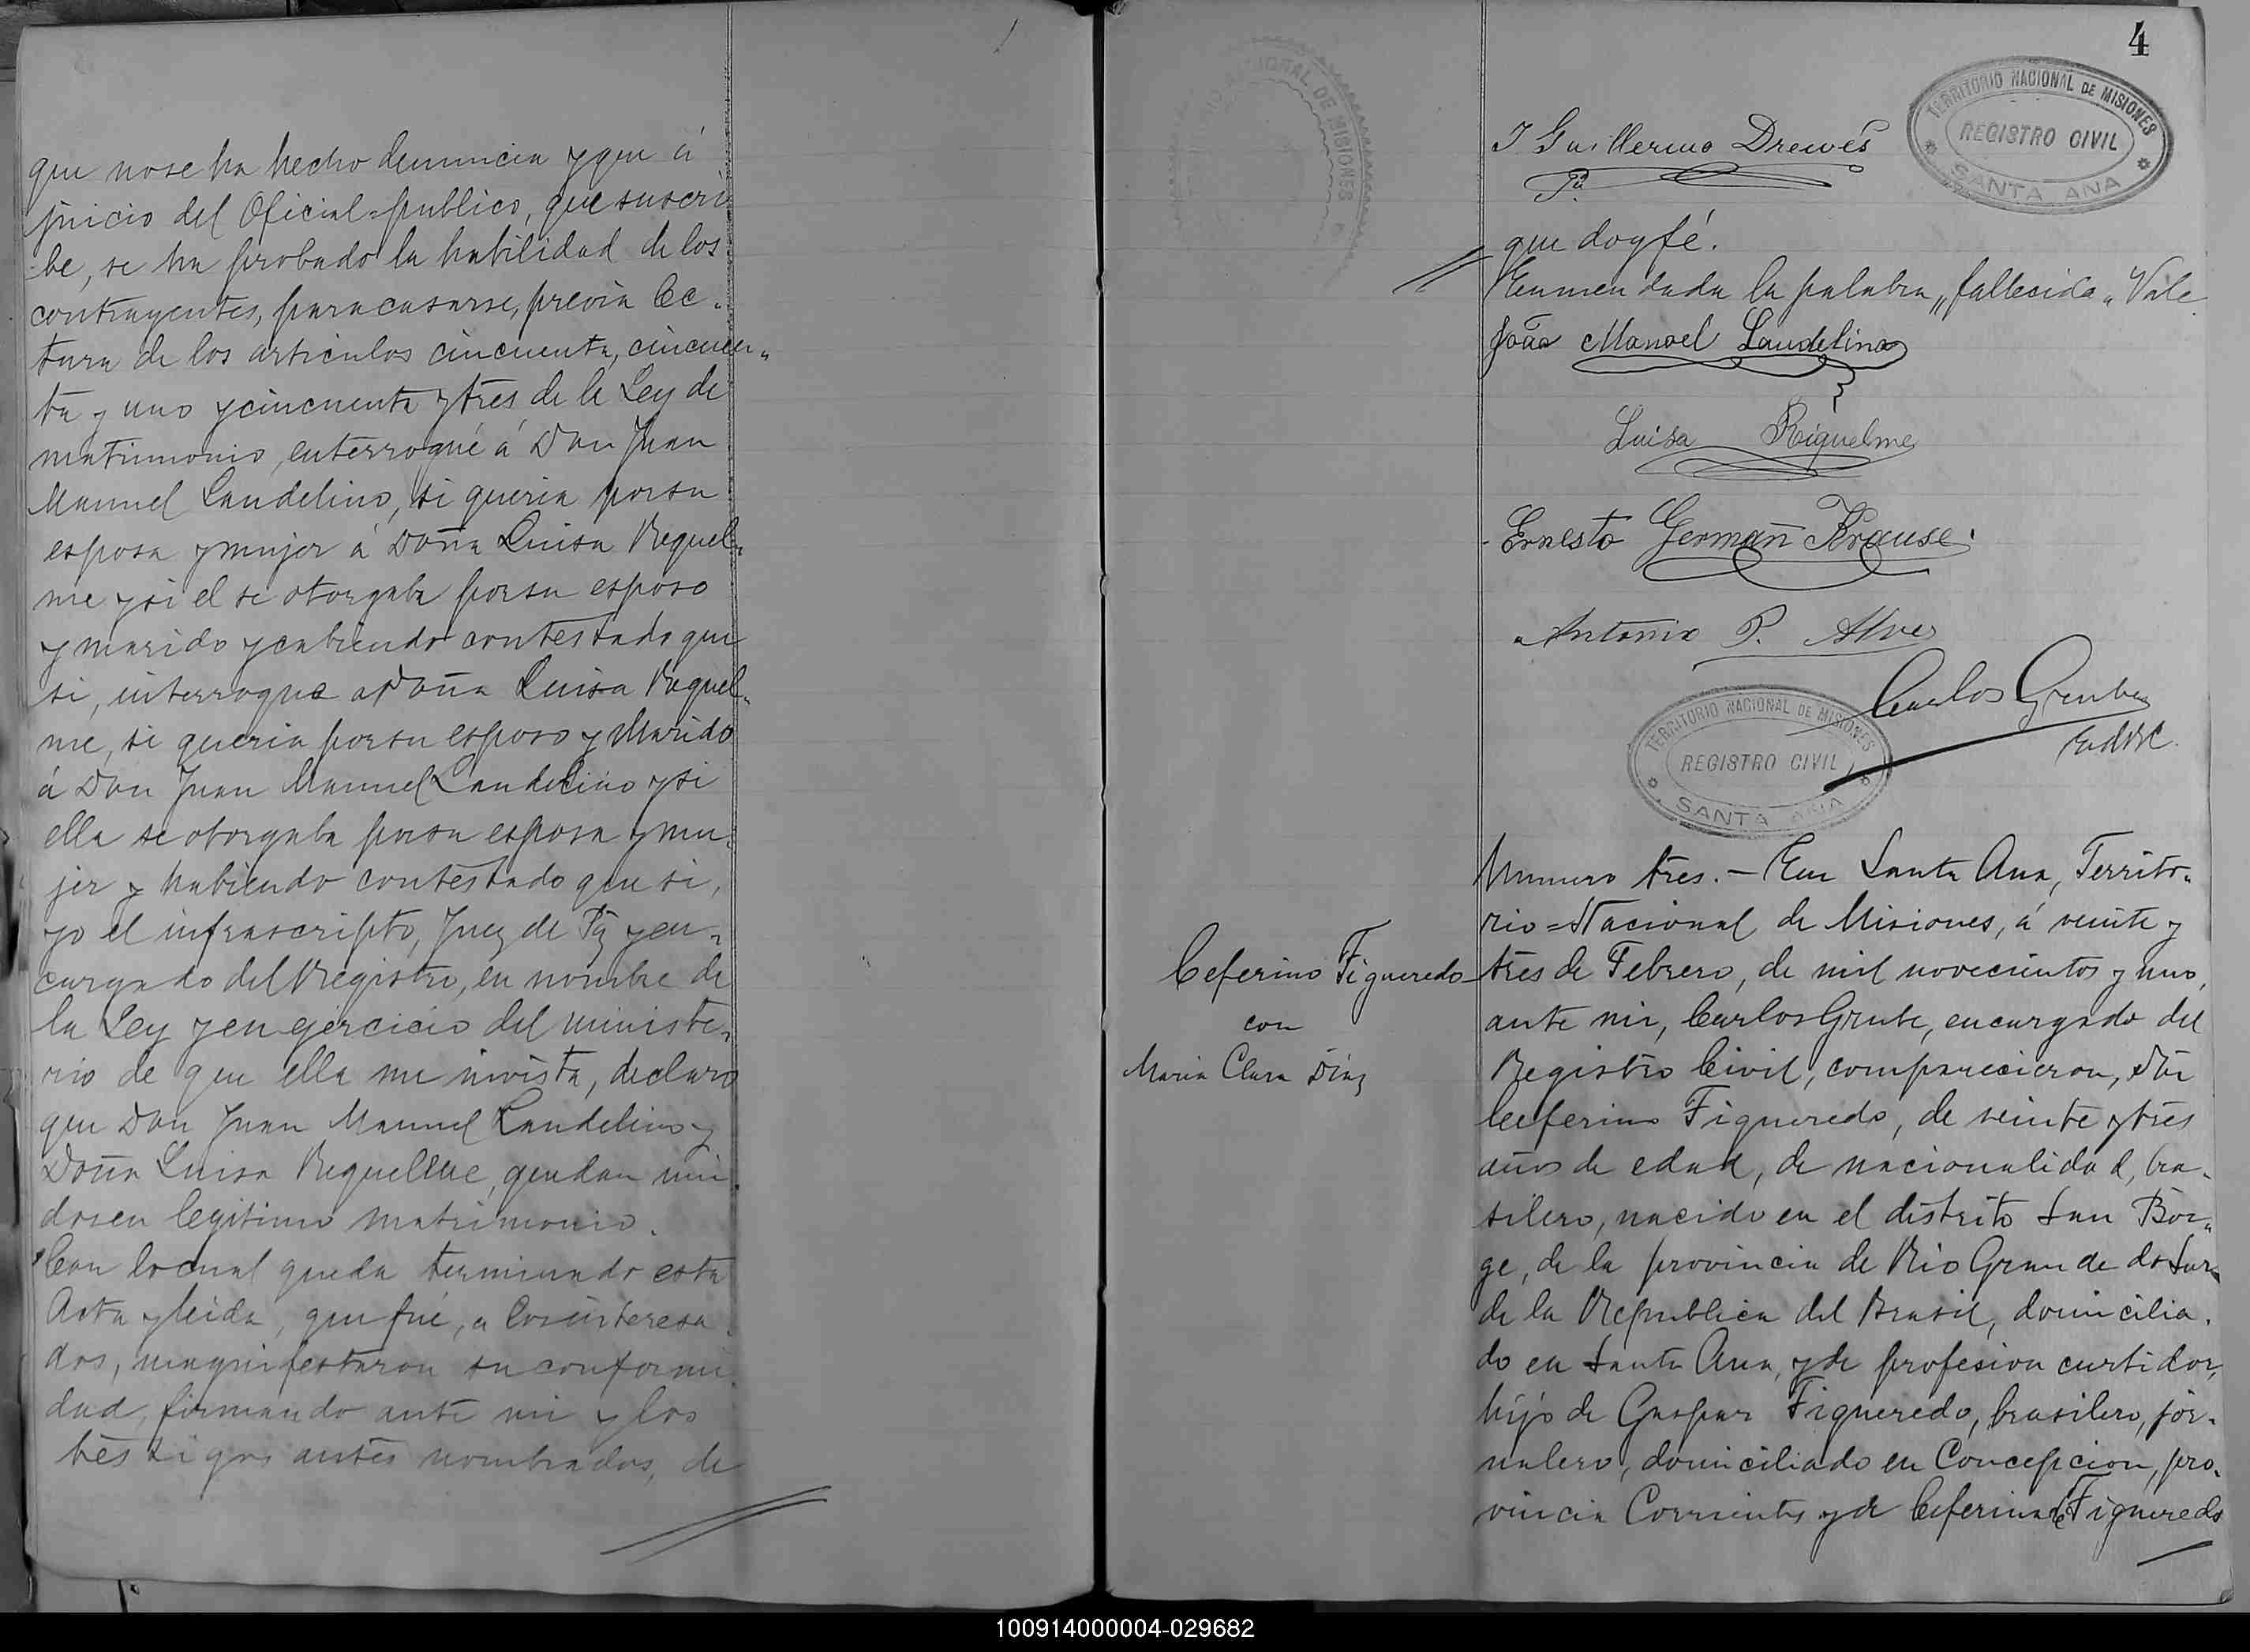 que no se ha hecho denuncia y que á
juicio del Oficial=publico, que suscri
be, se ha probado la habilidad de los
contrayentes, para casarse, previa lec-
tura de los articulos cincuenta, cincuen-
ta y uno y cincuenta y tres de le Ley de
matrimonio, enterrogué á Don Juan
Manuel Landelino, si queria por su
esposa y mujer á Doña Luisa Requel-
me y si el se otorgaba por su esposo
y marido y cabiendo contestado que
si, interrogue a Doña Luisa Requel-
me, si queria por su esposo y Marido
á Don Juan Manuel Landelino y si
ella se otorgaba por su esposa y mu-
jer y habiendo contestado que si,
yo el infrascripto, Juez de Paz y en-
cargado del Registro, en nombre de
la Ley y en ejercicio del ministe-
rio de que ella me invista, declaro
que Don Juan Manuel Landelino y
Doña Luisa Requelme, quedan uni
dos en legitimo matrimonio.
Con lo cual queda terminado esta
Acta y leida, que fué, a los interesa-
dos, magnifestaron su conformi-
dad, firmando ante mi y los
testigos antes nombrados, de
4
TERRITORIO NACIONAL DE MISIONES
REGISTRO CIVIL
SANTA ANA
NACIONAL DE MISIONES
J Guillermo Drewes
que doy fé.
Enmendada la palabra „fallecida„ Vale
João Manoel Laudelino
Luisa Riquelme
Ernesto German Krause.
Antonio P. Alves
Carlos Grube
TERRITORIO NACIONAL DE MISIONES
REGISTRO CIVIL
SANTA ANA
Ceferino Figueredo
con
Maria Clara Diaz
Numero tres. – En Santa Ana, Territo-
rio=Nacional de Misiones, á veinte y
tres de Febrero, de mil novecientos y uno,
ante mi, Carlos Grube, encargado del
Registro Civil, comparecieron, Don
Ceferino Figueredo, de veinte y tres
años de edad, de nacionalidad, bra-
silero, nacido en el distrito San Bor-
ge, de la provincia de Rio Grande do Sur
de la Republica del Brasil, domicilia-
do en Santa Ana, y de profesion curtidor,
hijo de Gaspar Figueredo, brasilero, jor-
nalero, domiciliado en Concepcion, pro-
vincia Corrientes y de Ceferina de Figueredo
100914000004-029682